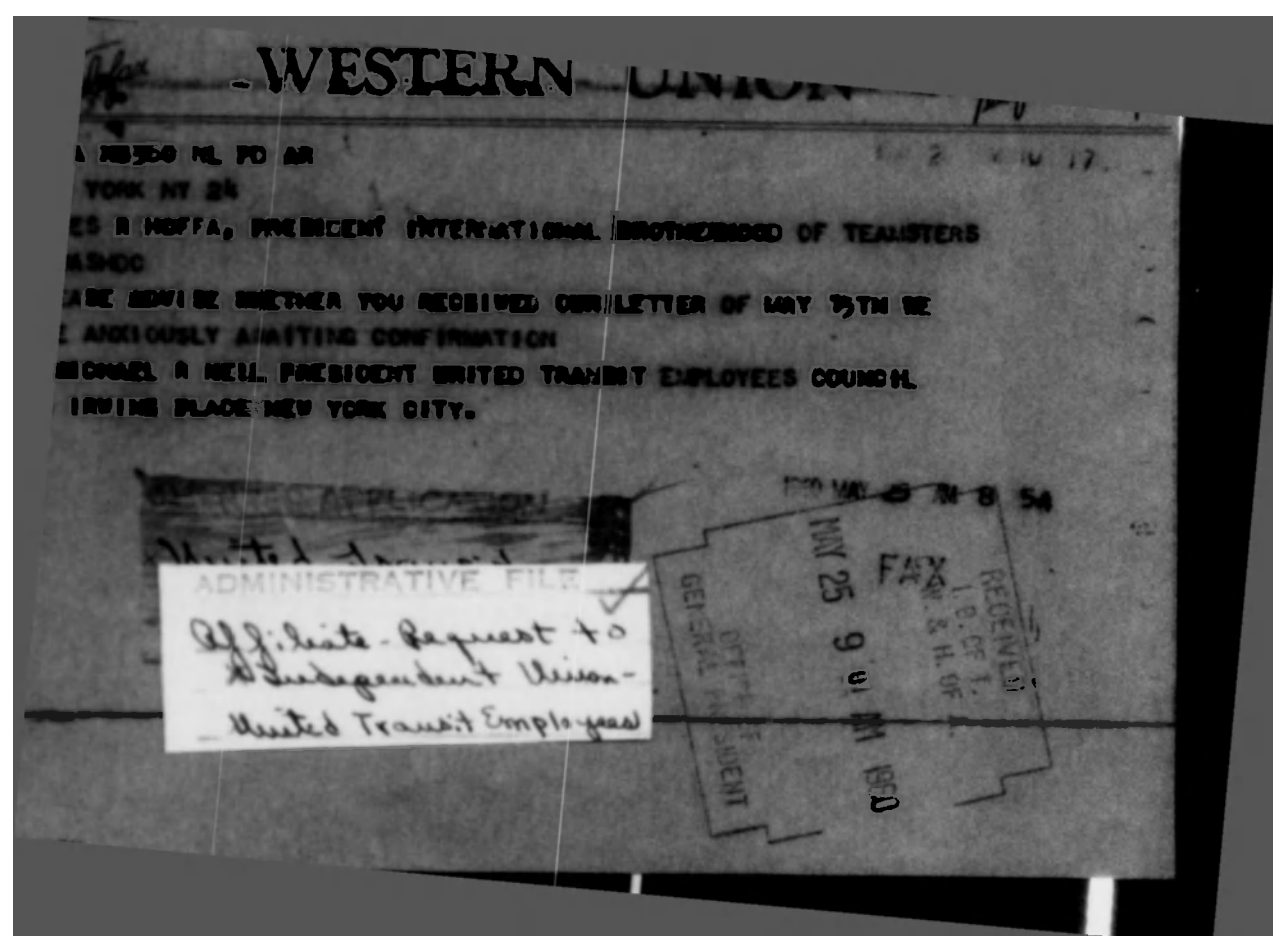 WESTERN UNION
NL PD AR
YORK NY 24
ES R HOFFA, PRESIDENT INTERNATIONAL BROTHERHOOD OF TEAMSTERS
ASHDC
EASE ADVISE WHETHER YOU RECEIVED OUR LETTER OF MAY 13TH WE
E ANXIOUSLY AWAITING CONFIRMATION
MICHAEL R NEILL PRESIDENT UNITED TRANSIT EMPLOYEES COUNCIL
IRVING PLACE NEW YORK CITY.
1960 MAY 25 AM 8 54
APPLICATION
United Transit
ADMINISTRATIVE FILE
Affiliate - Request to
Independent Union -
United Transit Employees
RECEIVED
I. B. OF T.
C. W. & H. OF A.
FAX
MAY 25 9 01 AM 1960
OFFICE OF
GENERAL PRESIDENT